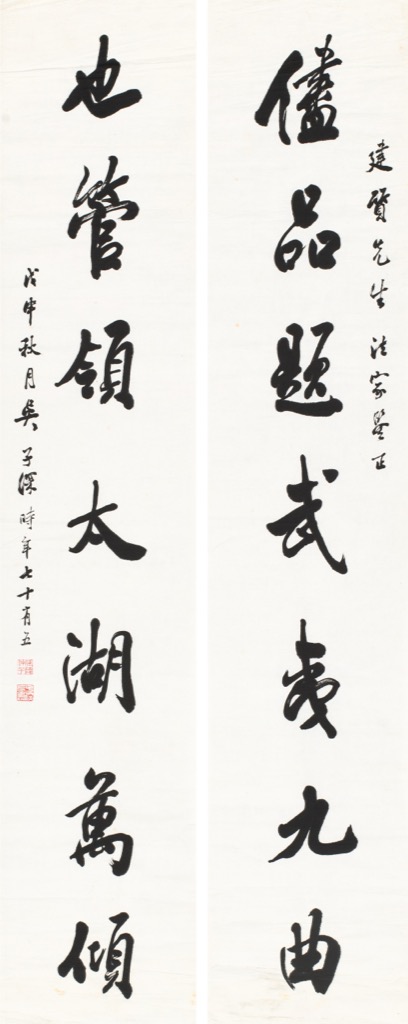 建賢先生法家鑒正
儘品題武夷九曲
也管領太湖萬傾
戊申秋月吳子深時年七十有五